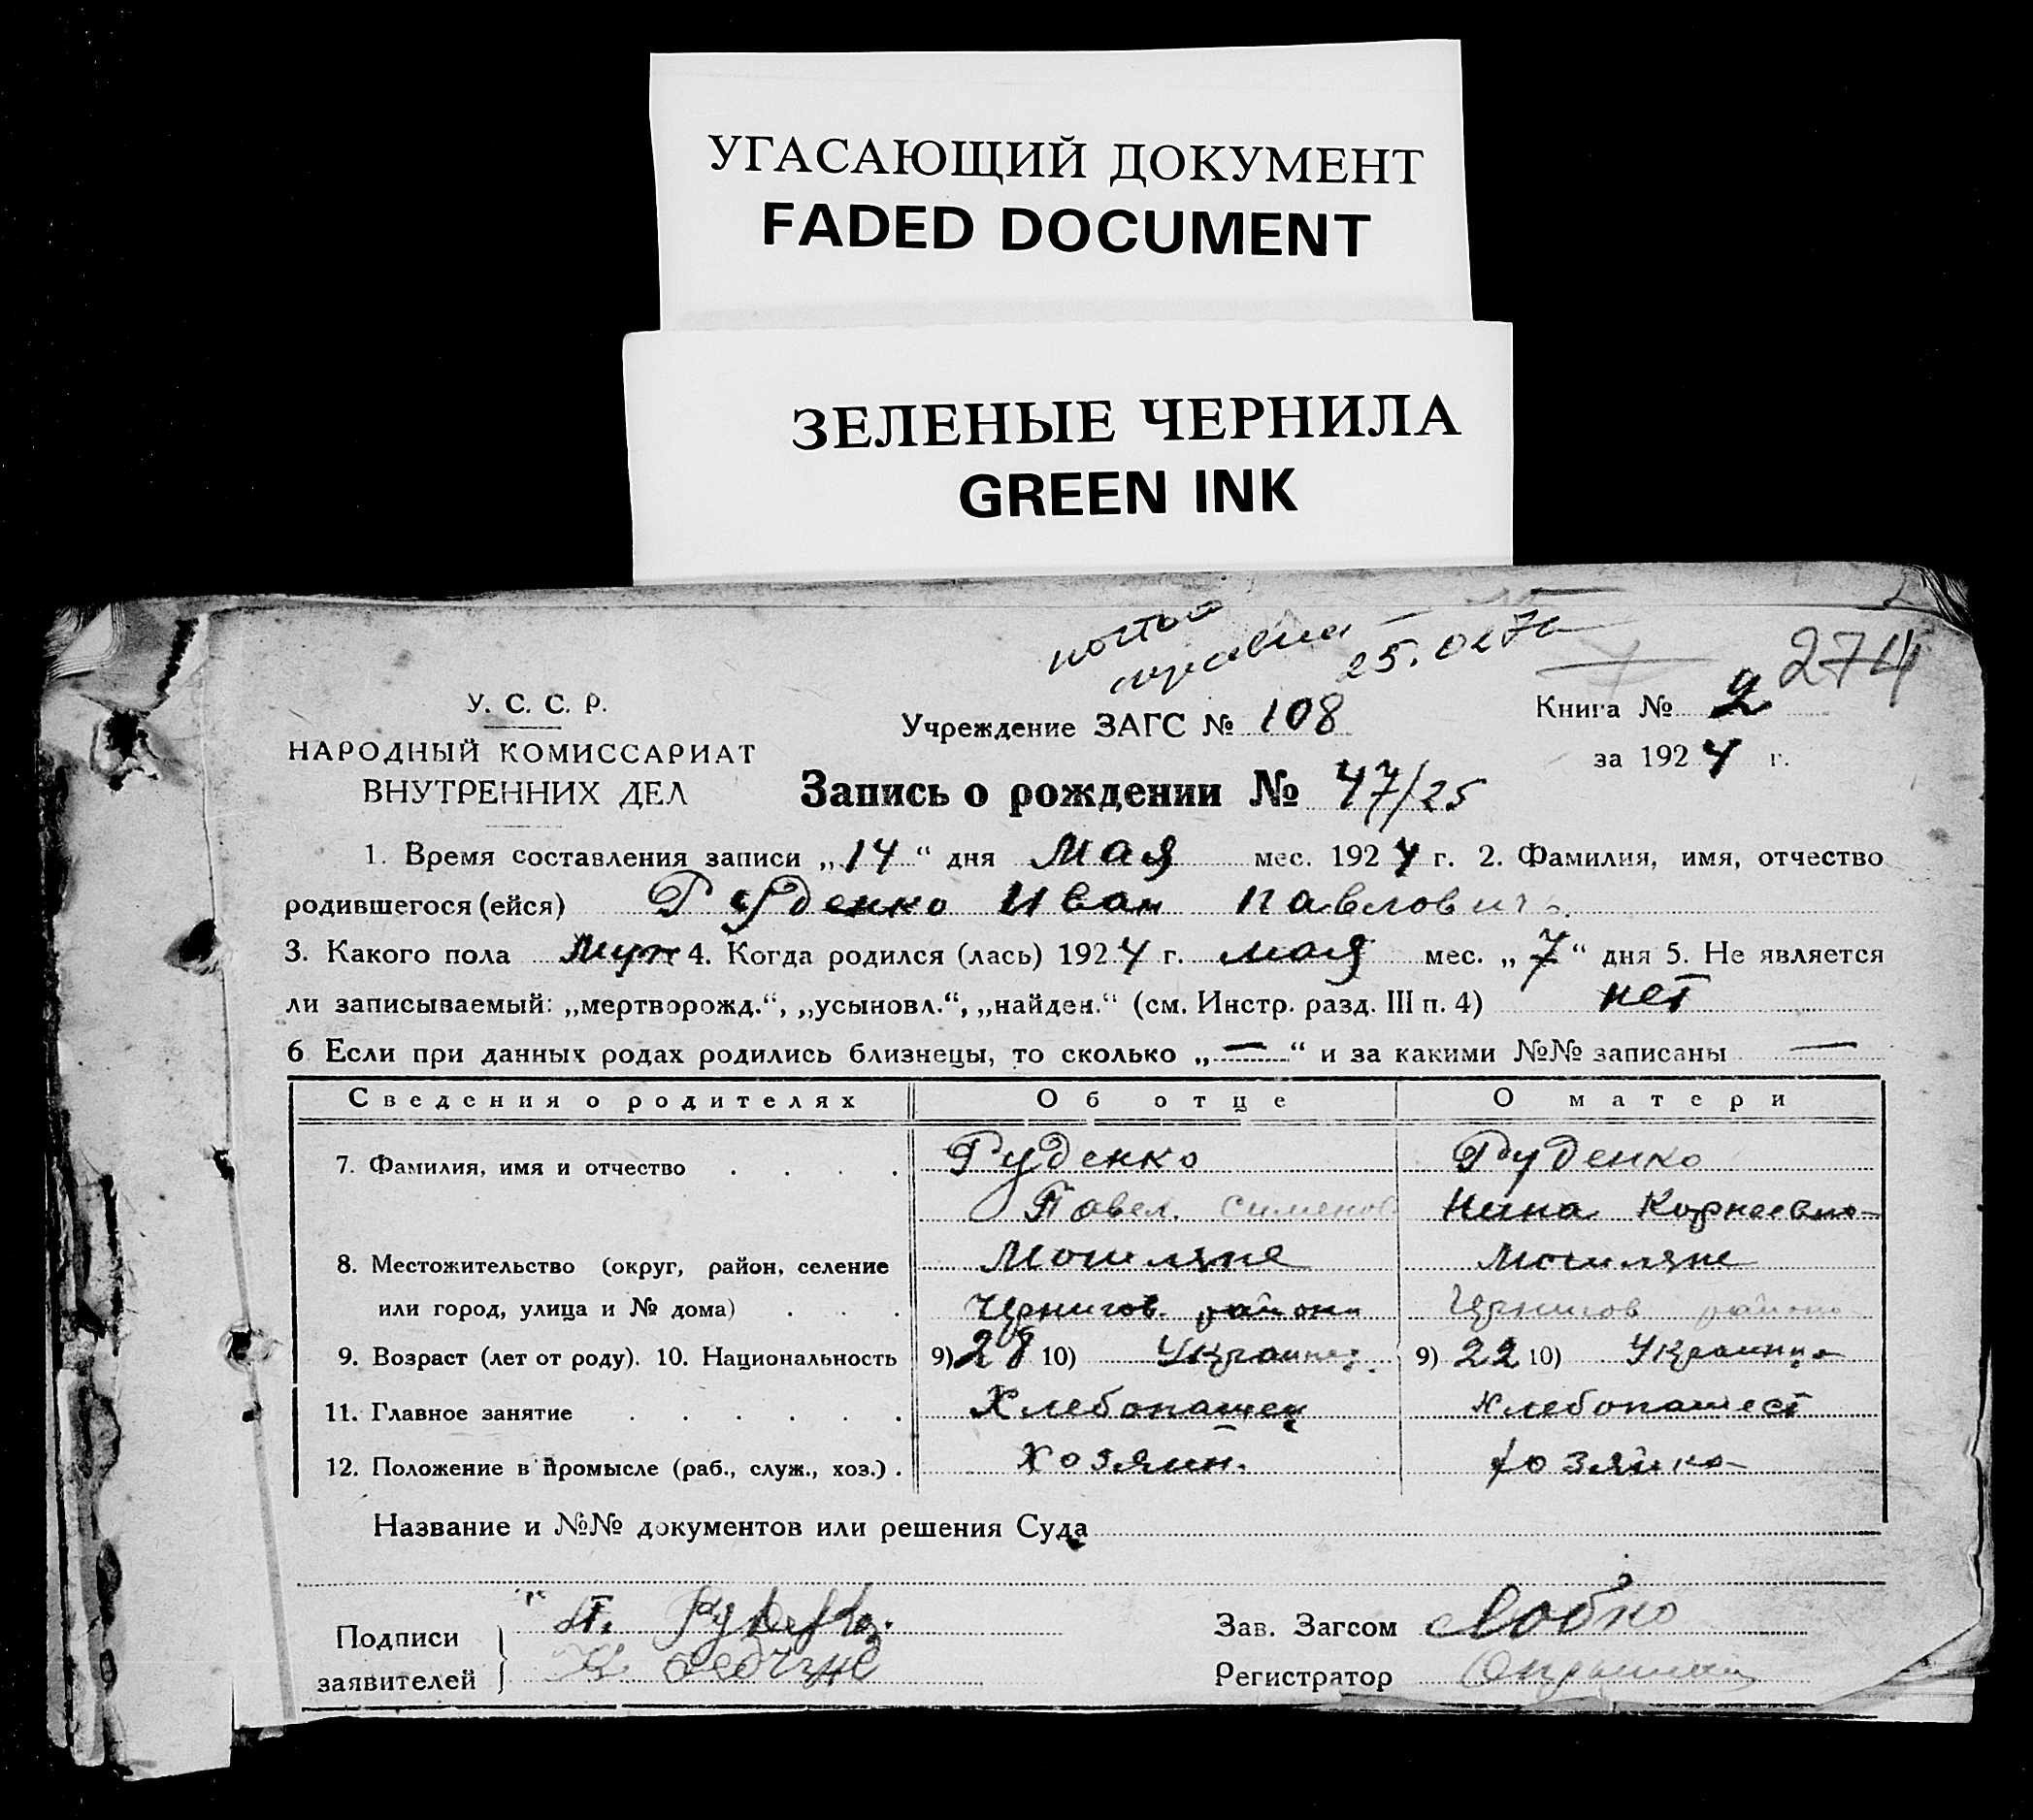 УГАСАЮЩИЙ ДОКУМЕНТ
FADED DOCUMENT
ЗЕЛЕНЫЕ ЧЕРНИЛА
GREEN INK
25.02
274
У. С. С. Р.
НАРОДНЫЙ КОМИССАРИАТ
ВНУТРЕННИХ ДЕЛ
Учреждение ЗАГС № 108
Книга № 2
за 1924 г.
Запись о рождении № 47/25
1. Время составления записи „14“ дня Мая мес. 1924 г. 2. Фамилия, имя, отчество
родившегося (ейся) Руденко Иван Павлович
3. Какого пола муж 4. Когда родился (лась) 1924 г. мая мес. „7“ дня 5. Не является
ли записываемый: „мертворожд.“, „усыновл.“, „найден.“ (см. Инстр. разд. III п. 4) нет
6 Если при данных родах родились близнецы, то сколько „—“ и за какими №№ записаны —
Сведения о родителях Об отце О матери
7. Фамилия, имя и отчество Руденко Руденко
Павел Сименов Нина Корнеевна
8. Местожительство (округ, район, селение Могиляне Могиляне
или город, улица и № дома) Чернигов. района Чернигов района
9. Возраст (лет от роду). 10. Национальность 9) 28 10) Украинец 9) 22 10) Украинка
11. Главное занятие Хлебопашец хлебопашест
12. Положение в промысле (раб., служ., хоз.) Хозяин. хозяйка
Название и №№ документов или решения Суда
Подписи
заявителей
П. Руденко
Зав. Загсом Лобко
Регистратор